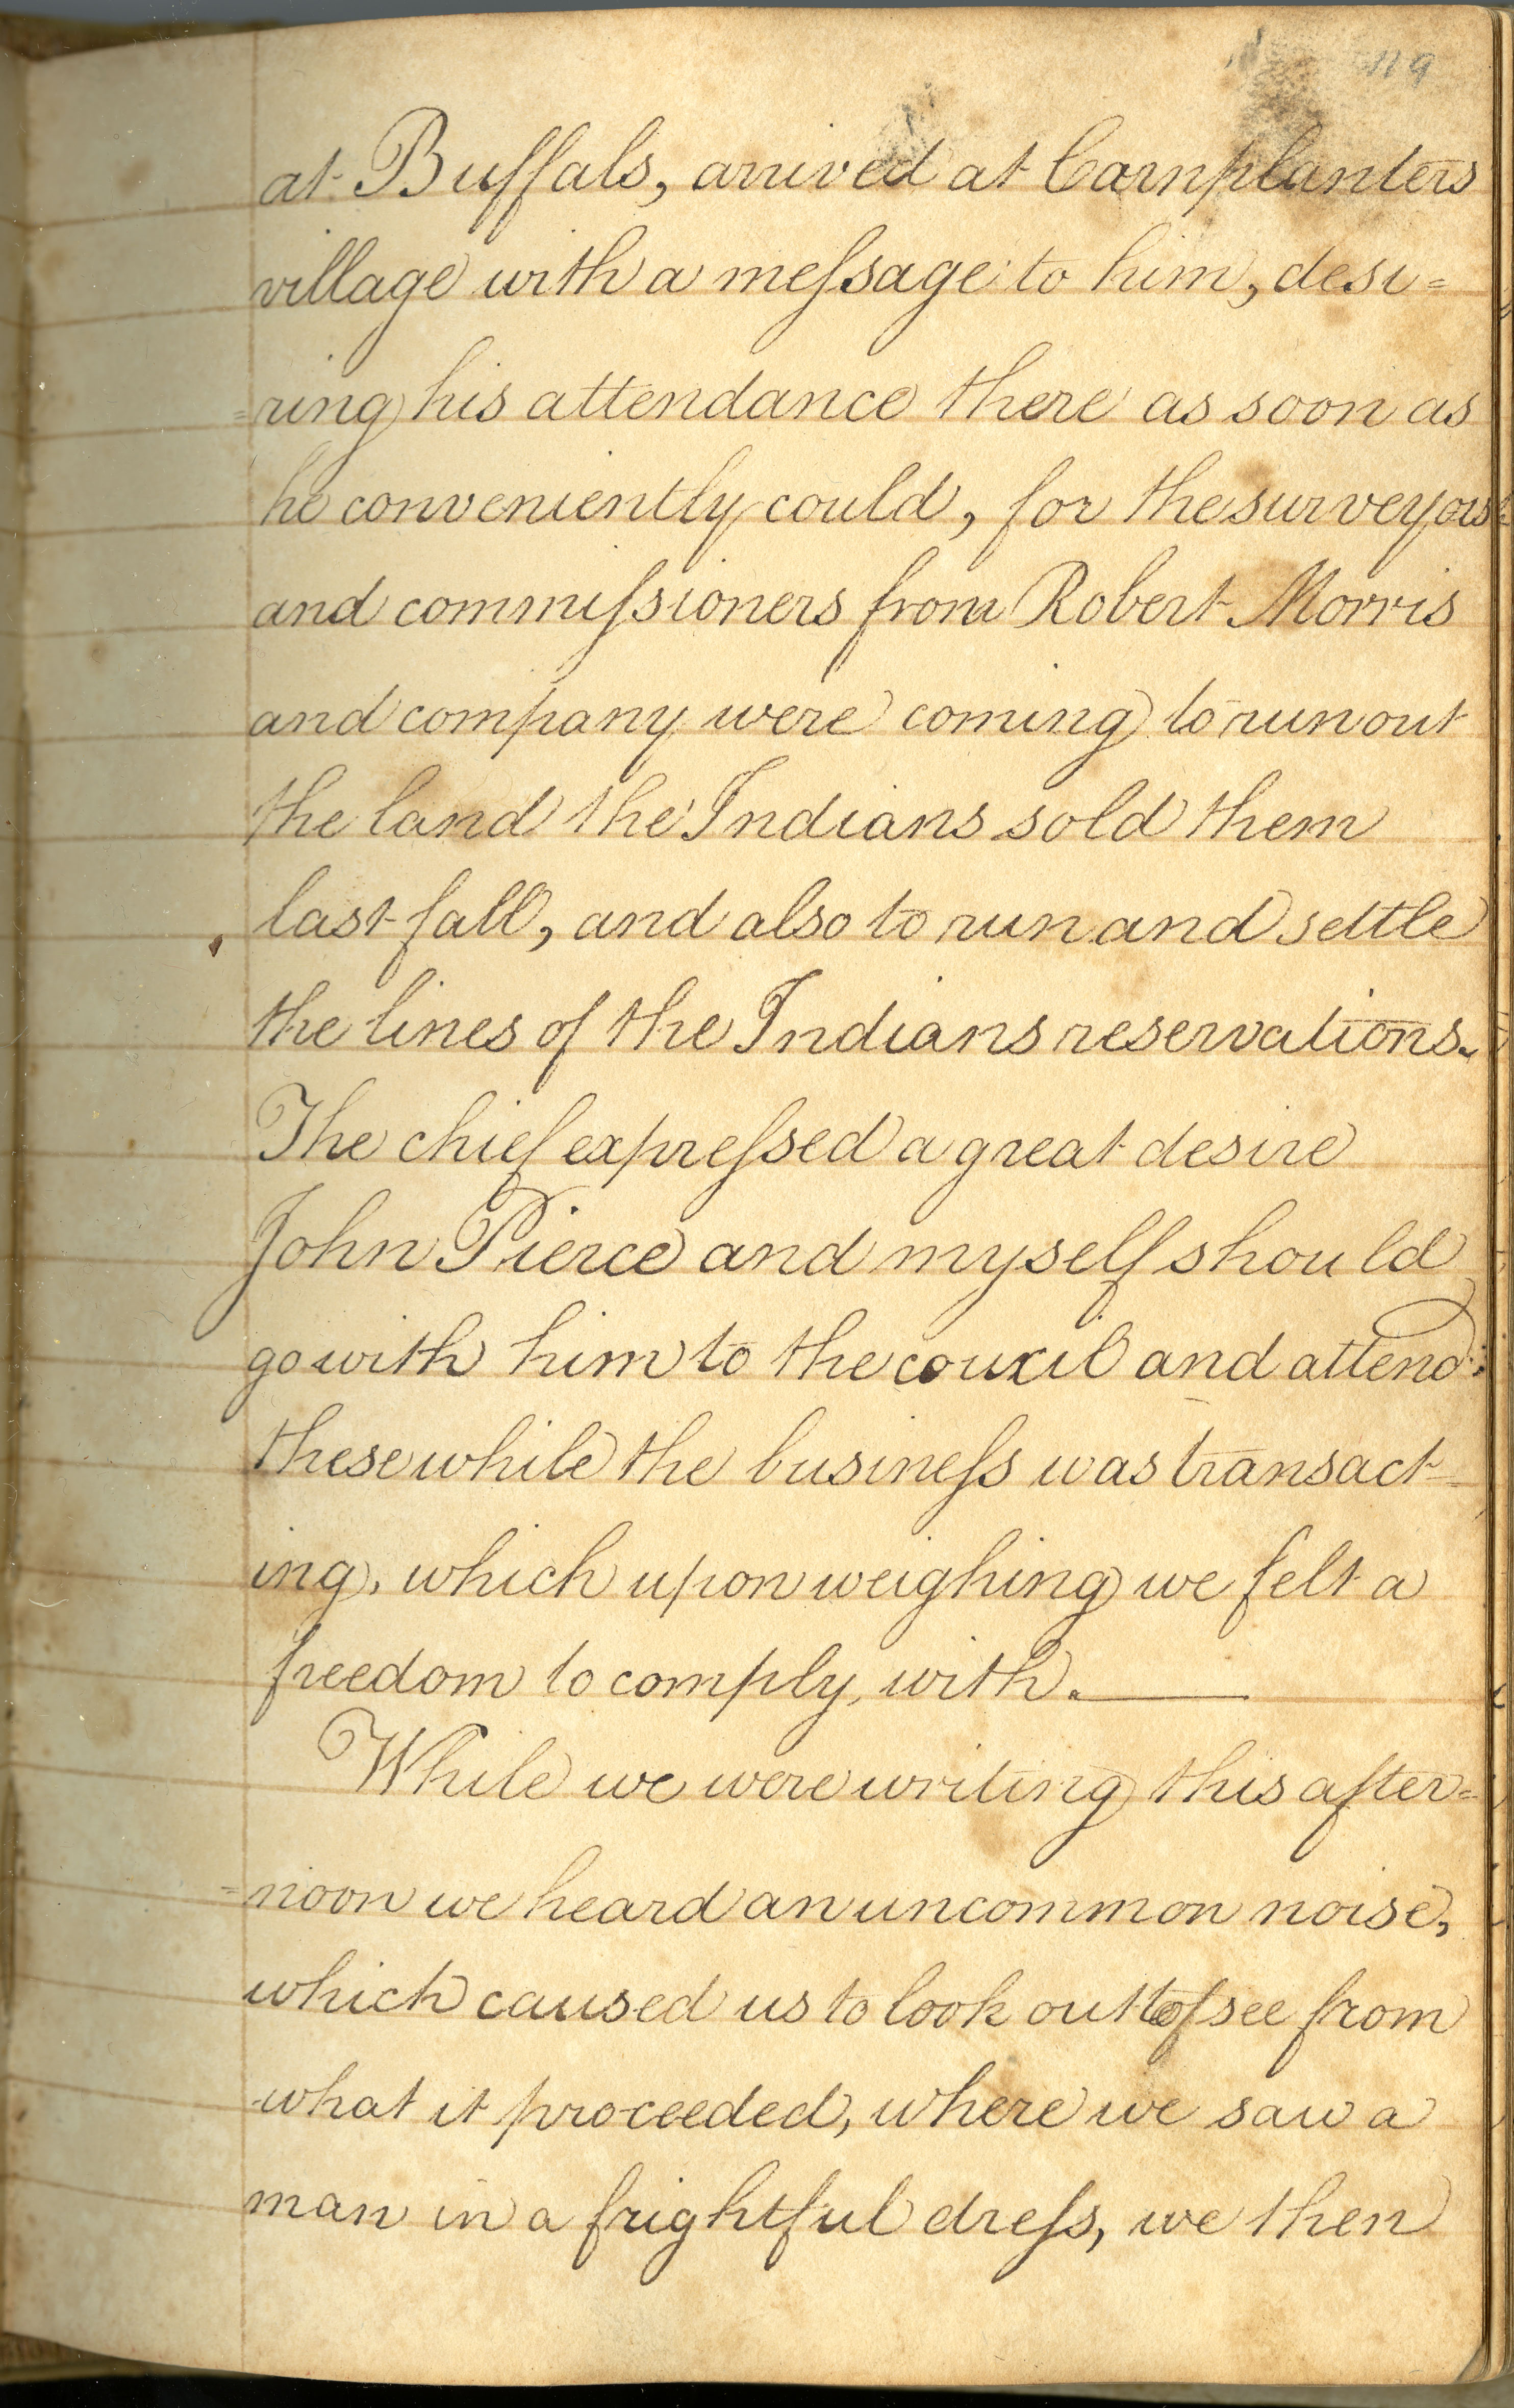 119
at Buffals, arrived at Cornplanters
village with a meſsage to him, desi=
=ring his attendance there as soon as
he conveniently could, for the surveyors
and commiſsioners from Robert Morris
and company were coming to run out
the land the Indians sold them
last fall, and also to run and settle
the lines of the Indians reservations.
The chief expreſsed a great desire
John Pierce and myself should
go with him to the council and attend
these while the busineſs was transact-
ing, which upon weighing we felt a
freedom to comply with.
While we were writing this after=
=noon we heard an uncommon noise,
which caused us to look out to see from
what it proceeded, where we saw a
man in a frightful dreſs, we then